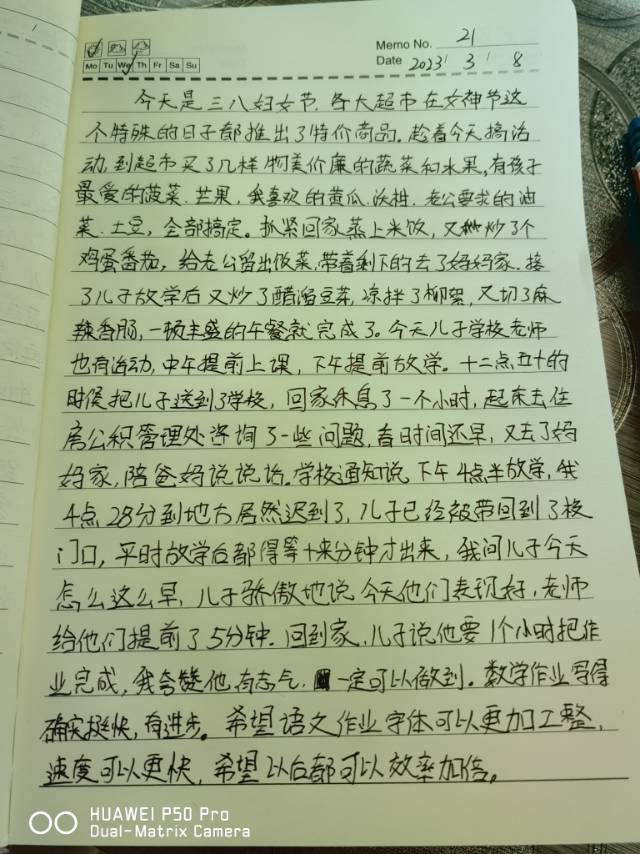 Memo No. 21
Mo Tu We Th Fr Sa Su
Date 2023 / 3 / 8
今天是三八妇女节,各大超市在女神节这
个特殊的日子都推出了特价商品。趁着今天搞活
动,到超市买了几样物美价廉的蔬菜和水果,有孩子
最爱的菠菜、芒果,我喜欢的黄瓜、沃柑,老公要求的油
菜、土豆,全部搞定。抓紧回家蒸上米饭,又炒了个
鸡蛋番茄,给老公留出饭菜,带着剩下的去了妈妈家。接
了儿子放学后又炒了醋溜豆芽,凉拌了柳絮,又切了麻
辣香肠,一顿丰盛的午餐就完成了。今天儿子学校老师
也有活动,中午提前上课,下午提前放学。十二点五十的
时候把儿子送到了学校,回家休息了一个小时,起床去住
房公积管理处咨询了一些问题,看时间还早,又去了妈
妈家,陪爸妈说说话。学校通知说下午4点半放学,我
4点28分到地方居然迟到了,儿子已经被带回到了校
门口,平时放学后都得等十来分钟才出来,我问儿子今天
怎么这么早,儿子骄傲地说今天他们表现好,老师
给他们提前了5分钟。回到家,儿子说他要1个小时把作
业完成,我夸赞他有志气,一定可以做到。数学作业写得
确实挺快,有进步。希望语文作业字体可以更加工整,
速度可以更快,希望以后都可以效率加倍。
HUAWEI P50 Pro
Dual-Matrix Camera